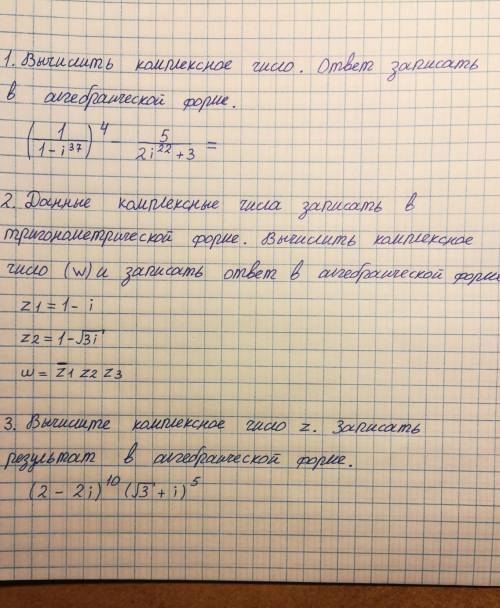 1. Вычислить комплексное число. Ответ записать
в алгебраической форме.
(1/(1-i^37))^4 - 5/(2i^22+3) =
2. Данные комплексные числа записать в
тригонометрической форме. Вычислить комплексное
число (w) и записать ответ в алгебраической форме
z1 = 1- i
z2 = 1-√3i
w = z̅1 z2 z3
3. Вычислите комплексное число z. Записать
результат в алгебраической форме.
(2 - 2i)^10 (√3 + i)^5